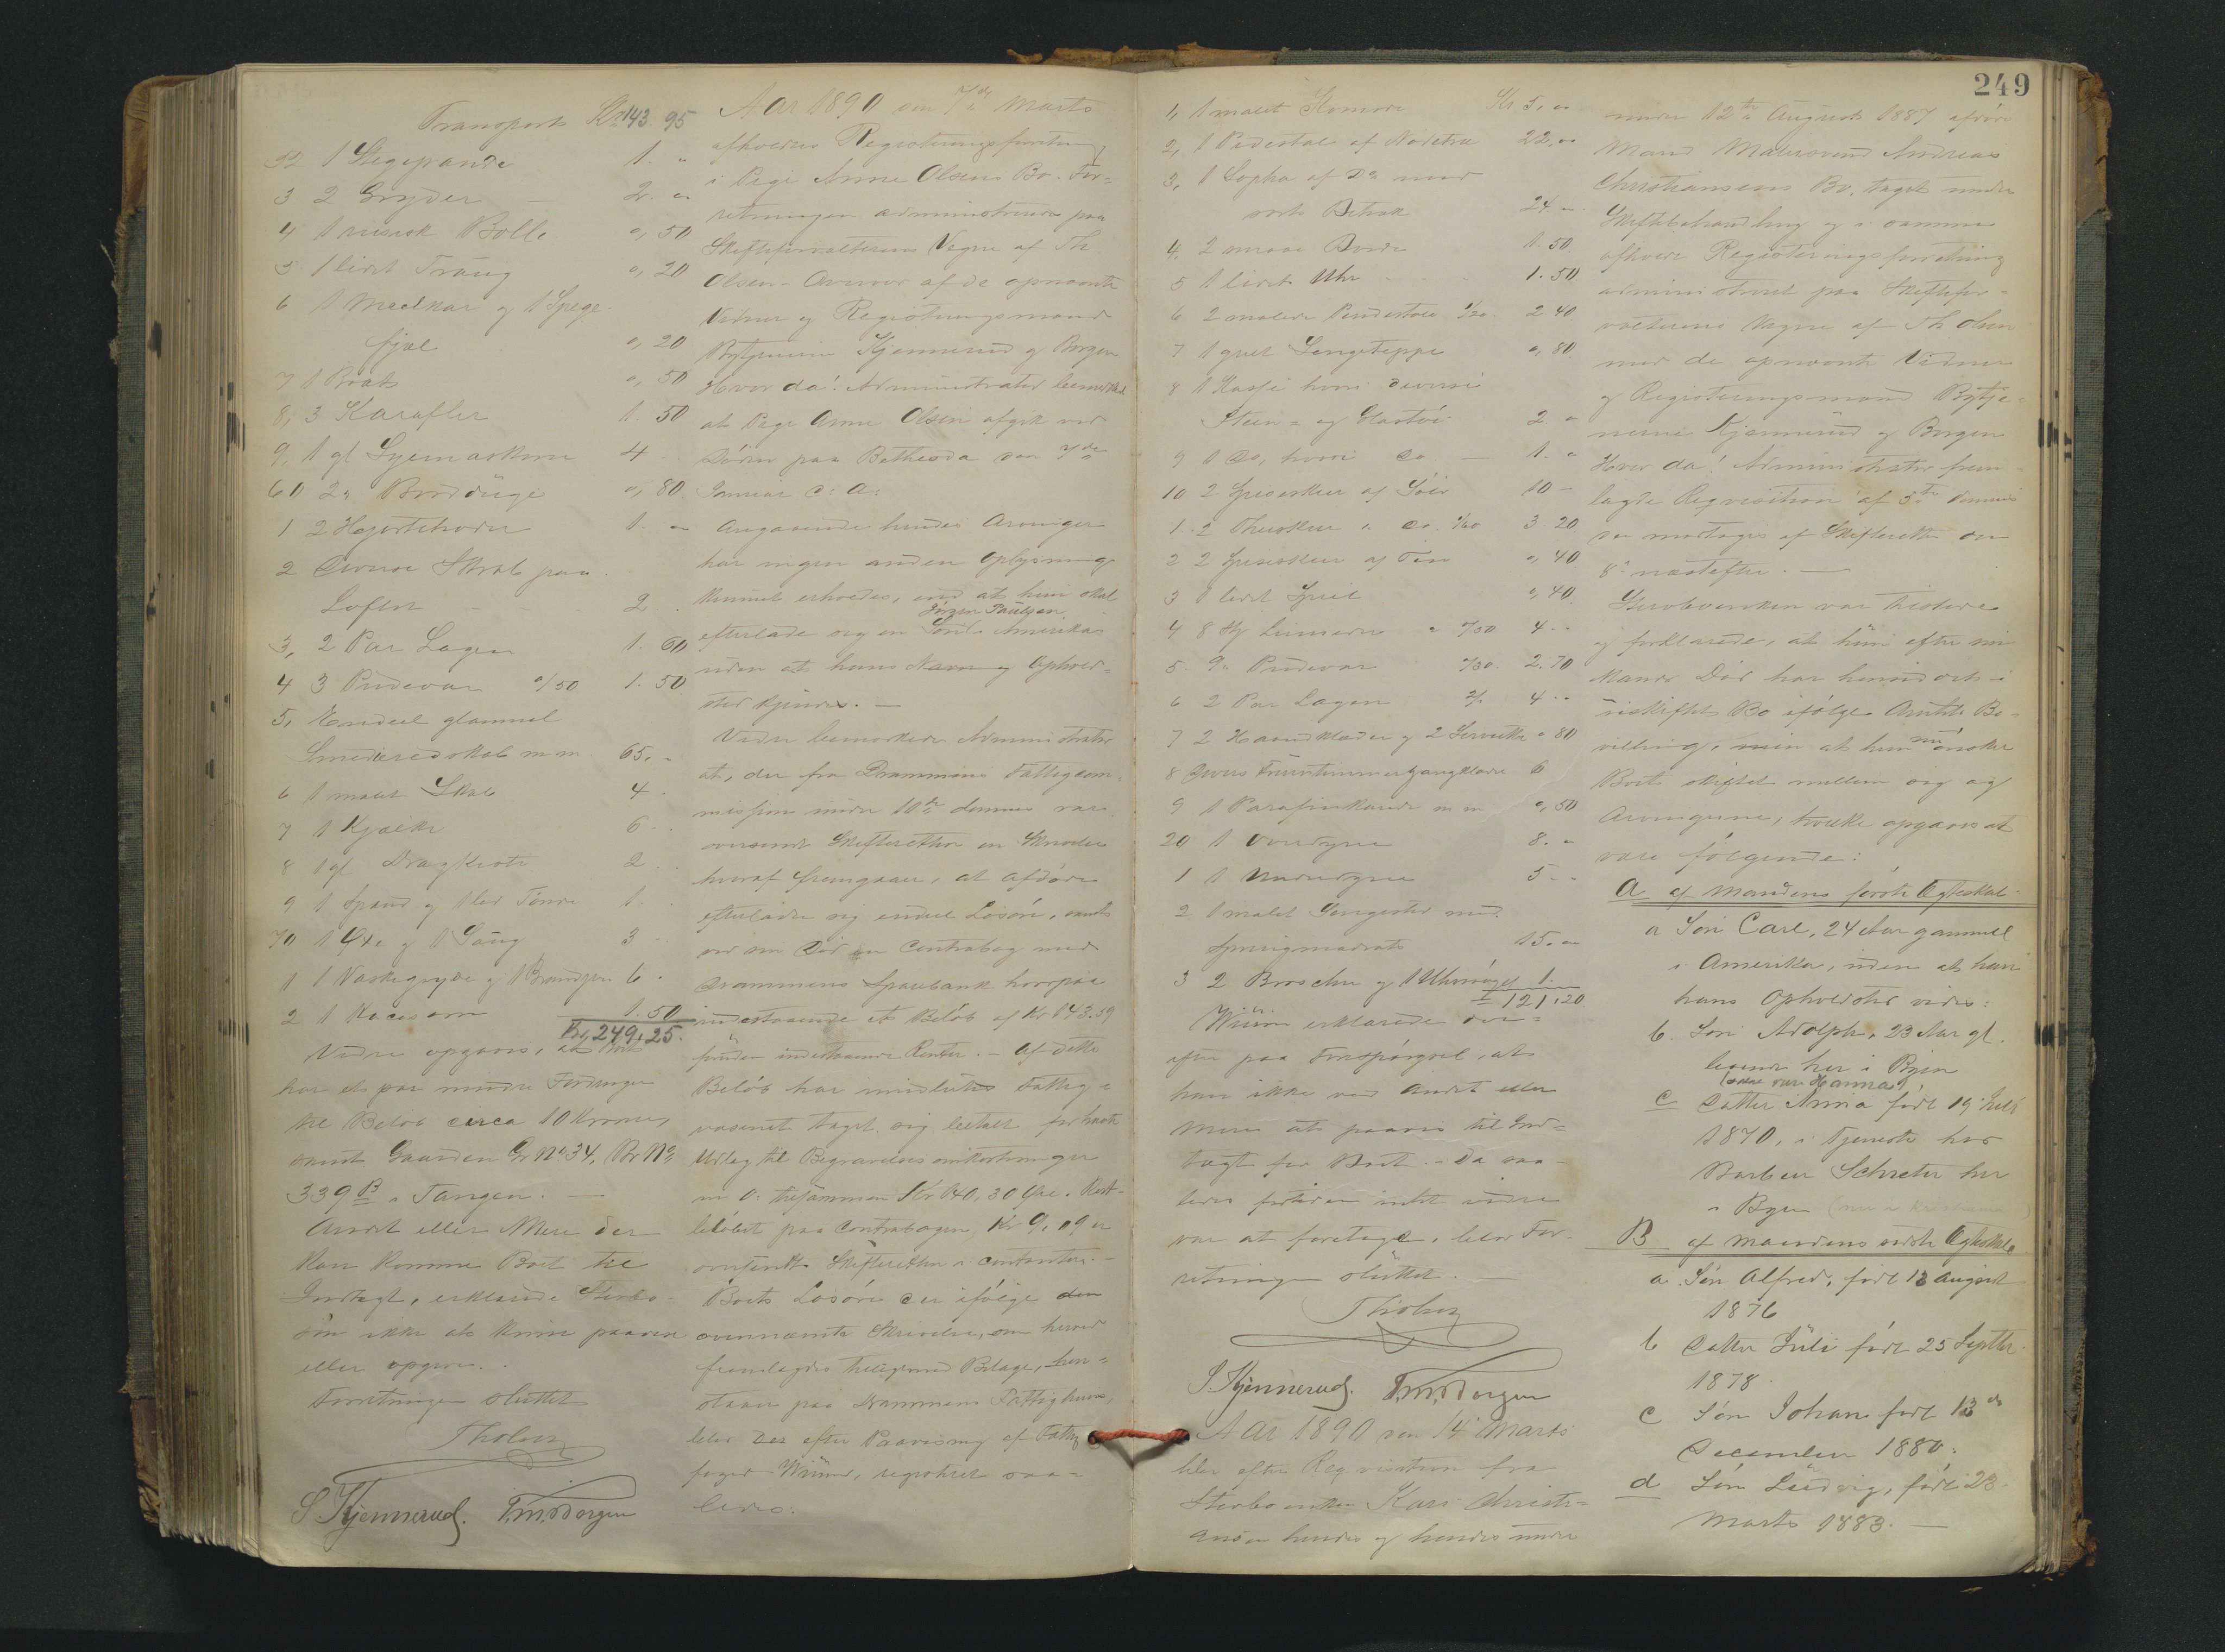 249
Transport Kr 143.95
52 1 Stegepande 1. "
3 2 Gryder - 2. "
4 1 russisk Bolle 0,50
5 1 lidet Traug 0,20
6 1 Maelkar og 1 Spege-
fjæl 0,20
7 1 Brat 0,50
8, 3 Karafler 1.50
9, 1 gl Symaskine 4
60 2 " Brødduge 0,80
1 2 Hjortehoder 1. "
2 Diverse Skrab paa
Loftet - - 2
3, 2 Par Lagen 1.60
4 3 Pudevar 0/50 1.50
5, Endeel gammel
Smederedskab m.m. 65. "
6 1 malet Skab 4
7 1 Kjælke 6
8 1 gl Dragkiste 2
9 1 Spand og 1 let Tønde 1
70 1 Øxe og 1 Saug 3
1 1 Vaskegryde og 1 6 "
2 1 1.50
Kr 249,25.
Videre opgaves, at Boet
har et par mindre Fordringer
til Beløb circa 10 Kroner,
samt Gaarden Gr No 34, Br No
339 B i Tangen. -
Andet eller Mere der
kan komme Boet til
Indtægt, erklærede Sterbo-
ikke at kunne paavise
eller opgive.
Forretningen sluttet
Tholsen
S. Kjennerud. T.M. Borgen
Aar 1890 den 7de Marts
afholdtes Registreringsforretning
i Pige Anne Olsens Bo. For-
retningen administreredes paa
Skifteforvalterens Vegne af Th
Olsen - Overvær af de opnævnte
Vidner og Registreringsmænd
Bytjenerne Kjennerud og Borgen
Hvor da! Administrator bemærked
at Pige Anne Olsen afgik ved
Døden paa Bethesda den 7de
Januar d: A:
Angaaende hendes Arvinger
har ingen anden Oplysning
kunnet erholdes, end at hun skal
Jørgen Paulsen
efterlade sig en Søn i Amerika
uden at hans Navn og Ophold-
sted kjendes. -
Videre bemærkede Administrator
at, der fra Drammens Fattigcom-
mission under 10de dennes var
oversendt Skifteretten en Skrivelse
hvoraf fremgaaer, at afdøde
efterlader sig endeel Løsøre, samt
ved sin Død en Contrabog med
Drammens Sparebank hvorpaa
indestaaende et Beløb af Kr 143.59
foruden indestaaende Renter. - Af dette
Beløb har imidlertid Fattig-
væsenet taget sig betalt for havte
Udlæg til Begravelsesomkostninger
m. v. tilsammen Kr 140,30 Øre. Rest-
beløbet paa Contrabogen, Kr 9,19 er
oversendt Skifteretten i contanter. -
Boets Løsøre er ifølge den
ovennævnte Skrivelse, som herved
fremlagdes tilligemed Bilage, hen-
staaer paa Drammens Fattighuus,
blev der efter Paavisning af Fattig-
foged Wium, registreret saa-
ledes:
1, 1 malet Komode Kr 5, "
2, 1 Pidestal af Nødetræ 22, "
3, 1 Sopha af Do med
sort Betræk 24 "
4, 2 smaae Borde 1.50
5 1 lidet Uhr - - 1.50
6 2 malede Pindestole 1/20 2 40
7 1 gult Sengeteppe 0,80
8 1 Kasse hvori diverse
Steen- og Glastøi 2 "
9 1 do, hvori do - 1. "
10 2 Spiseskeer af Sølv 10 -
1 2 Theskeer " do. 1/60 3.20
2 2 Spiseskeer af Tin 0,40
3 1 lidet Speil 0,40
4 8 a 0/50 4 - -
5 9 " Pudevar 0/30. 2.70
6 2 Par Lagen 2/. 4 - -
7 2 Haandklæder og 2 Servietter " 80
8 Divers Fruentimmergangklæder 6
9 1 Parafinkande m m 0,50
20 1 Overdyne 8. "
1 1 Underdyne 5 - -
2 1 malet Sengested med
Springmadrats 15. "
3 2 Brocher og 1 Uhrnøgel 1.
= 121,20
Wiim erklærede der-
efter paa Forespørgsel, at
han ikke ved Andet eller
Mere at paavise til Ind-
tægt for Boet. - Da saa-
ledes fortiden intet videre
var at foretage, blev For-
retningen sluttet. -
Tholsen
S. Kjennerud. T.M. Borgen
Aar 1890 den 14de Marts
blev efter Requisition fra
Sterboenken Kari Christi-
ansen hendes og hendes under
under 12te August 1887 afdøde
Mand Andreas
Christiansens Bo, taget under
Skiftebehandling og i samme
afholdt Registreringsforretning
administreret paa Skiftefor-
valterens Vegne af Th Olsen
med de opnævnte Vidner
og Registreringsmænd Bytje-
nerne Kjennerud og Borgen
Hvor da! Administrator frem-
lagde Reqvisition af 5te dennes
der modtages af Skifteretten den
8de næstefter. -
Sterboenken var tilstede
og forklarede, at hun efter sin
Mands Død har hensiddet i
uskiftet Bo ifølge Amtets Be-
villing, men at hun nu ønsker
Boet skiftet mellem sig og
Arvingerne, hvilke opgaves at
være følgende:
A af Mandens første Ægteskab
a Søn Carl, 24 Aar gammel
i Amerika, uden at han
hans Opholdsted vides:
b. Søn Adolph, 23 Aar gl.
boende her i Byen
Hanna
c Datter Anna født 19 Juli
1870, i Tjeneste hos
Barbeer Schreter her
i Byen (nu i Kristiania)
B af Mandens sidste Ægteskab
a Søn Alfred, født 13 August
1876
b Datter Juli født 25 Septbr
1878.
c Søn Johan født 13de
December 1880.
d Søn Ludvig, født 23
Marts 1883. -